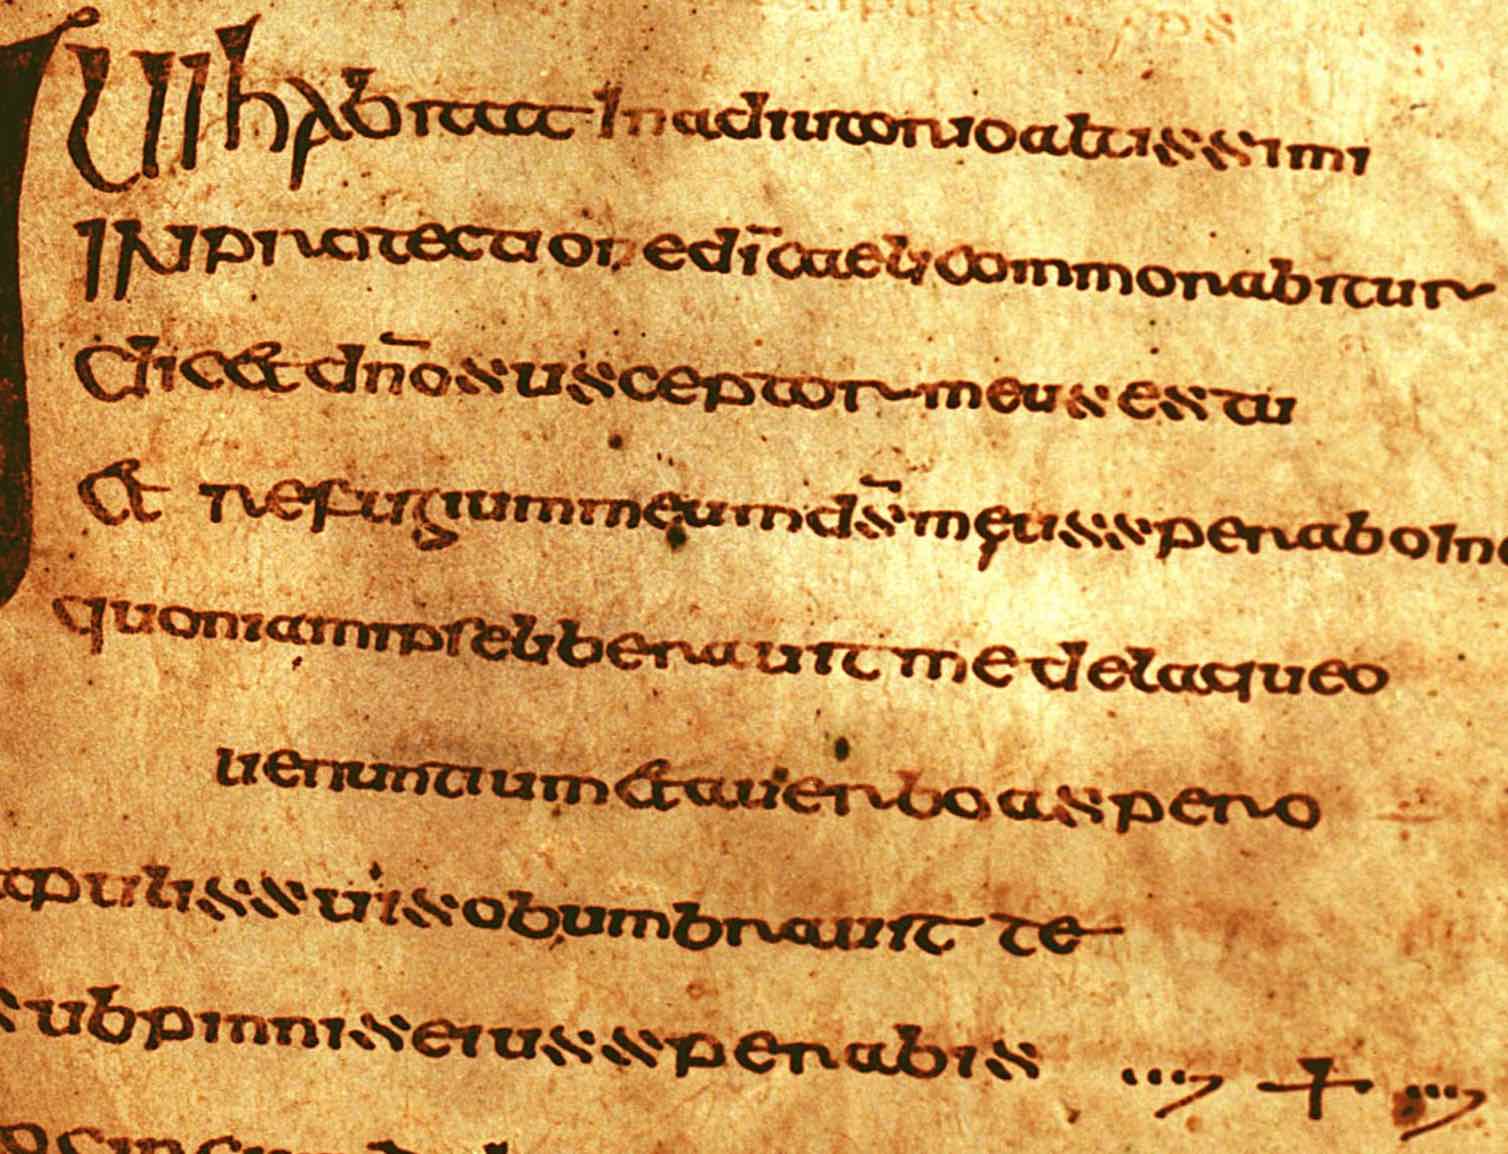 QUI habitat In adiutorio altissimi
IN protectione dī caeli commorabitur
dicet dn̄o susceptor meus es tu
& refugium meum ds̄ meus sperabo In
quoniam ipse liberauit me de laqueo
uenantium & a uerbo aspero
apulis suis obumbrauit te
sub pinnis eius sperabis